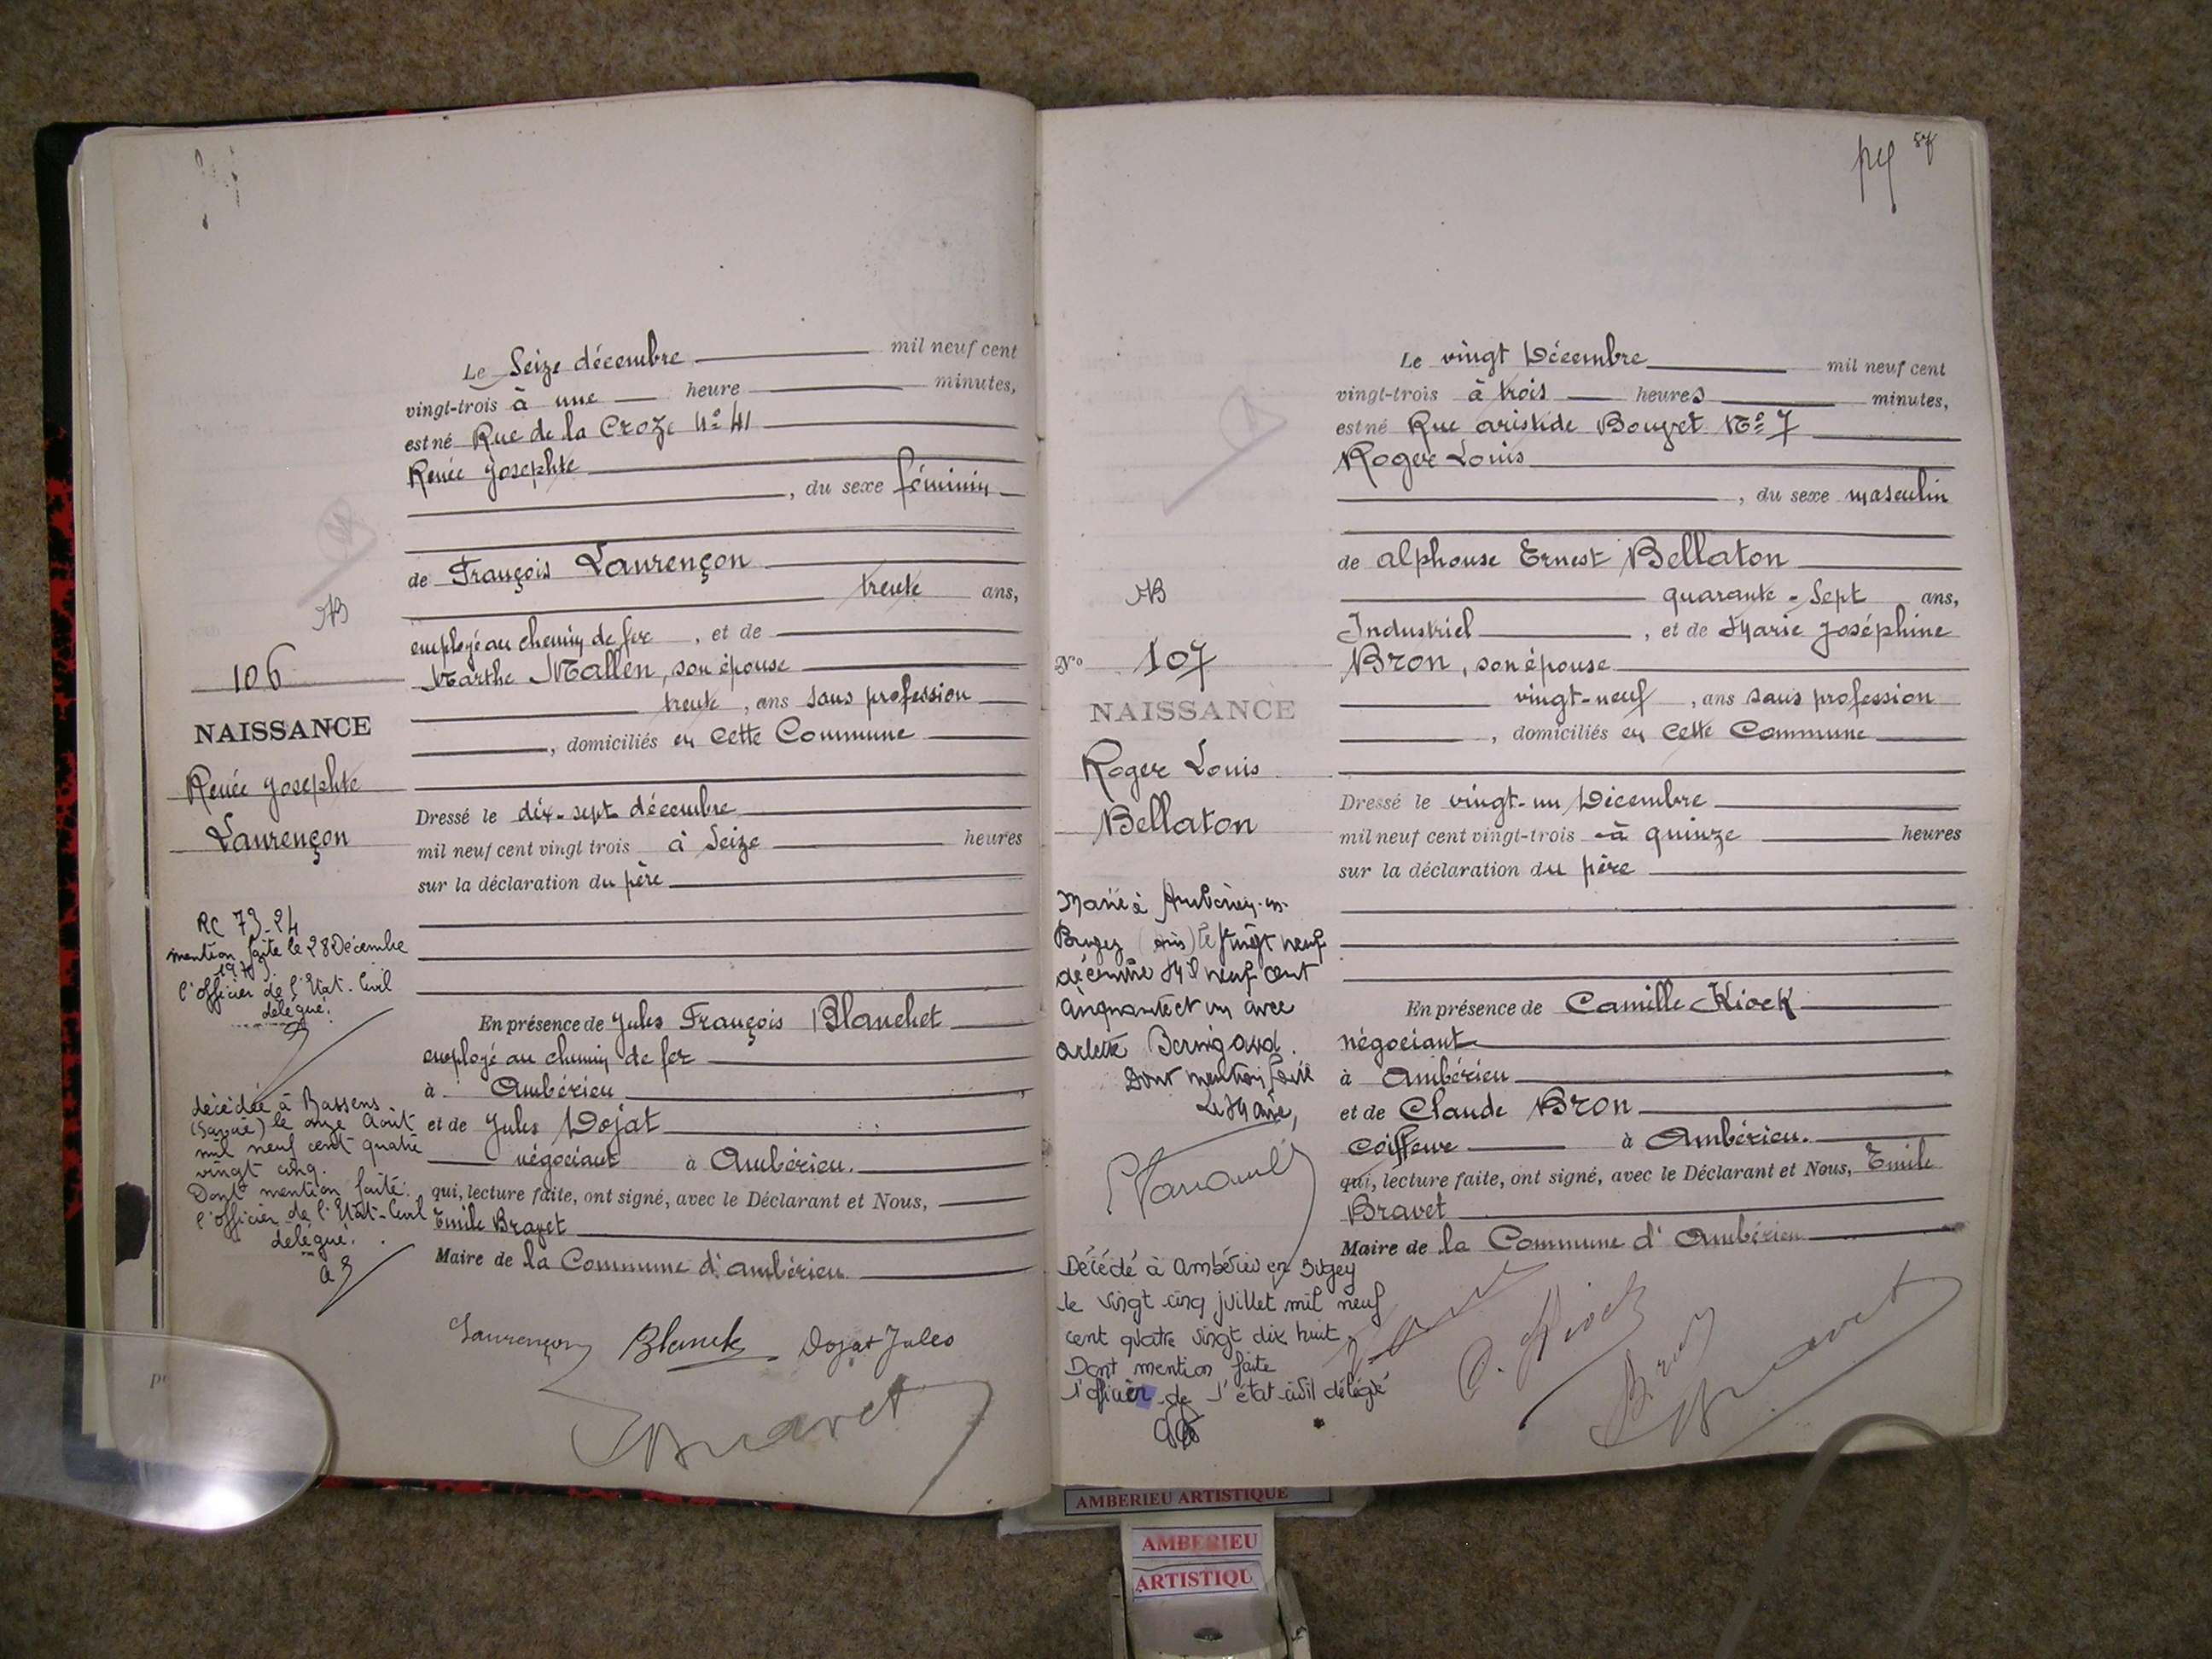 Le Seize décembre mil neuf cent
vingt-trois à une heure minutes,
est né Rue de la Croze N° 41
Renée Josephte
, du sexe féminin
de François Laurençon
trente ans,
employé au chemin de fer , et de
Marthe Mallen, son épouse
trente , ans sans profession
, domiciliés en cette Commune
Dressé le dix-sept décembre
mil neuf cent vingt trois à Seize heures
sur la déclaration du père
En présence de Jules François Blanchet
employé au chemin de fer
à Ambérieu
et de Jules Dojat
négociant à Ambérieu.
qui, lecture faite, ont signé, avec le Déclarant et Nous,
Emile Bravet
Maire de la Commune d'ambérieu
Laurençon Blanchet Dojat Jules
EBravet
106
NAISSANCE
Renée Josephte
Laurençon
RC 73-24
mention faite le 28 Décembre
l'officier de l'Etat-Civil
délégué.
décédée à Bassens
(Savoie) le onze Août
mil neuf cent quatre
vingt cinq.
Dont mention faite.
l'officier de l'Etat-Civil
délégué.
87
Le vingt Décembre mil neuf cent
vingt-trois à trois heures minutes,
est né Rue aristide Bouvet N° 7
Roger Louis
, du sexe masculin
de alphonse Ernest Bellaton
quarante-Sept ans,
Industriel , et de Marie Joséphine
Bron, son épouse
vingt-neuf , ans sans profession
, domiciliés en cette Commune
Dressé le vingt-un Décembre
mil neuf cent vingt-trois à quinze heures
sur la déclaration du père
En présence de Camille Kiock
négociant
à Ambérieu
et de Claude Bron
coiffeur à Ambérieu.
qui, lecture faite, ont signé, avec le Déclarant et Nous, Emile
Bravet
Maire de la Commune d'Ambérieu
C. Kiock Bron
EBravet
N° 107
NAISSANCE
Roger Louis
Bellaton
Marié à Ambérieu-en-
Bugey (Ain) le vingt neuf
décembre Mil neuf cent
cinquante et un avec
Arlette
Dont mention faite
Le Maire,
Décédé à Ambérieu en Bugey
le vingt cinq juillet mil neuf
cent quatre vingt dix huit
Dont mention faite
l'officier de l'état-civil délégué
AMBERIEU ARTISTIQUE
AMBERIEU
ARTISTIQU